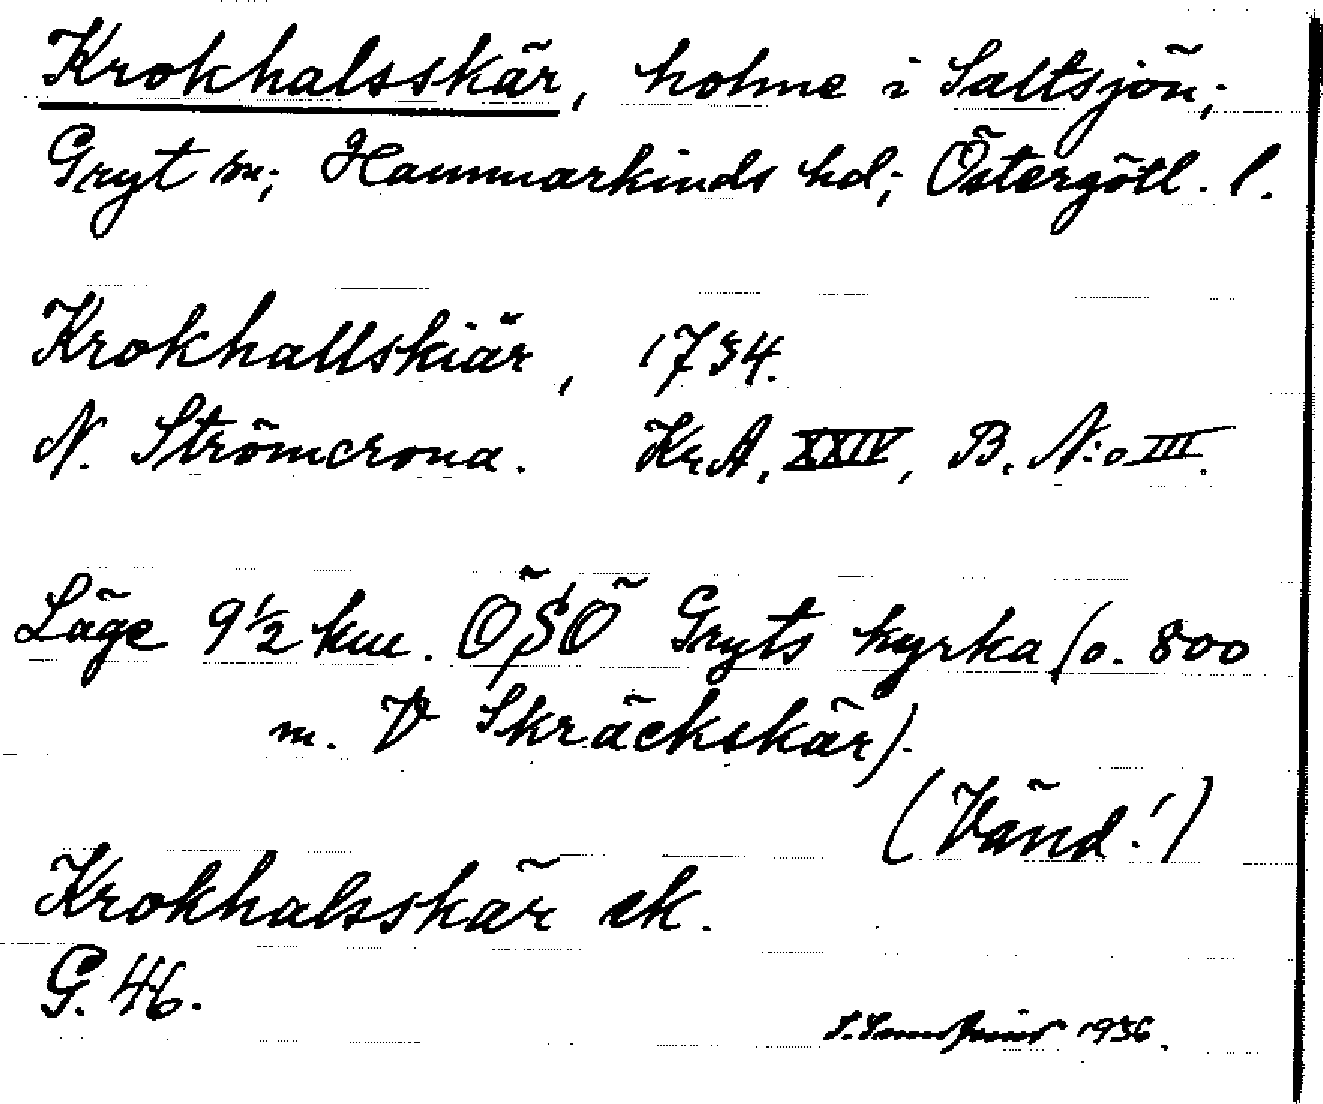 Krokhalsskär, holme i Saltsjön;
Gryt sn; Hammarkinds hd; Östergötl. l.
Krokhallskiär, 1734.
N. Strömcrona. Kr.A, XXIV, B. N:o III.
Läge 9½ km. ÖSÖ Gryts kyrka (o. 800
m. V Skräckskär).
(Vänd!)
Krokhalsskär ek.
G. 46.
1936.